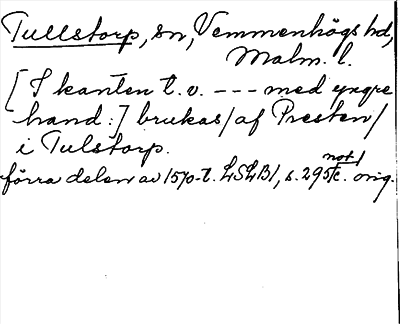 Tullstorp, sn, Vemmenhögs hd,
Malm. l.
[I kanten t. v. --- med yngre
hand:] brukas/af Presten/
i Tulstorp.
förra delen av 1570-t. LSLB1, s. 295
not 1
orig.